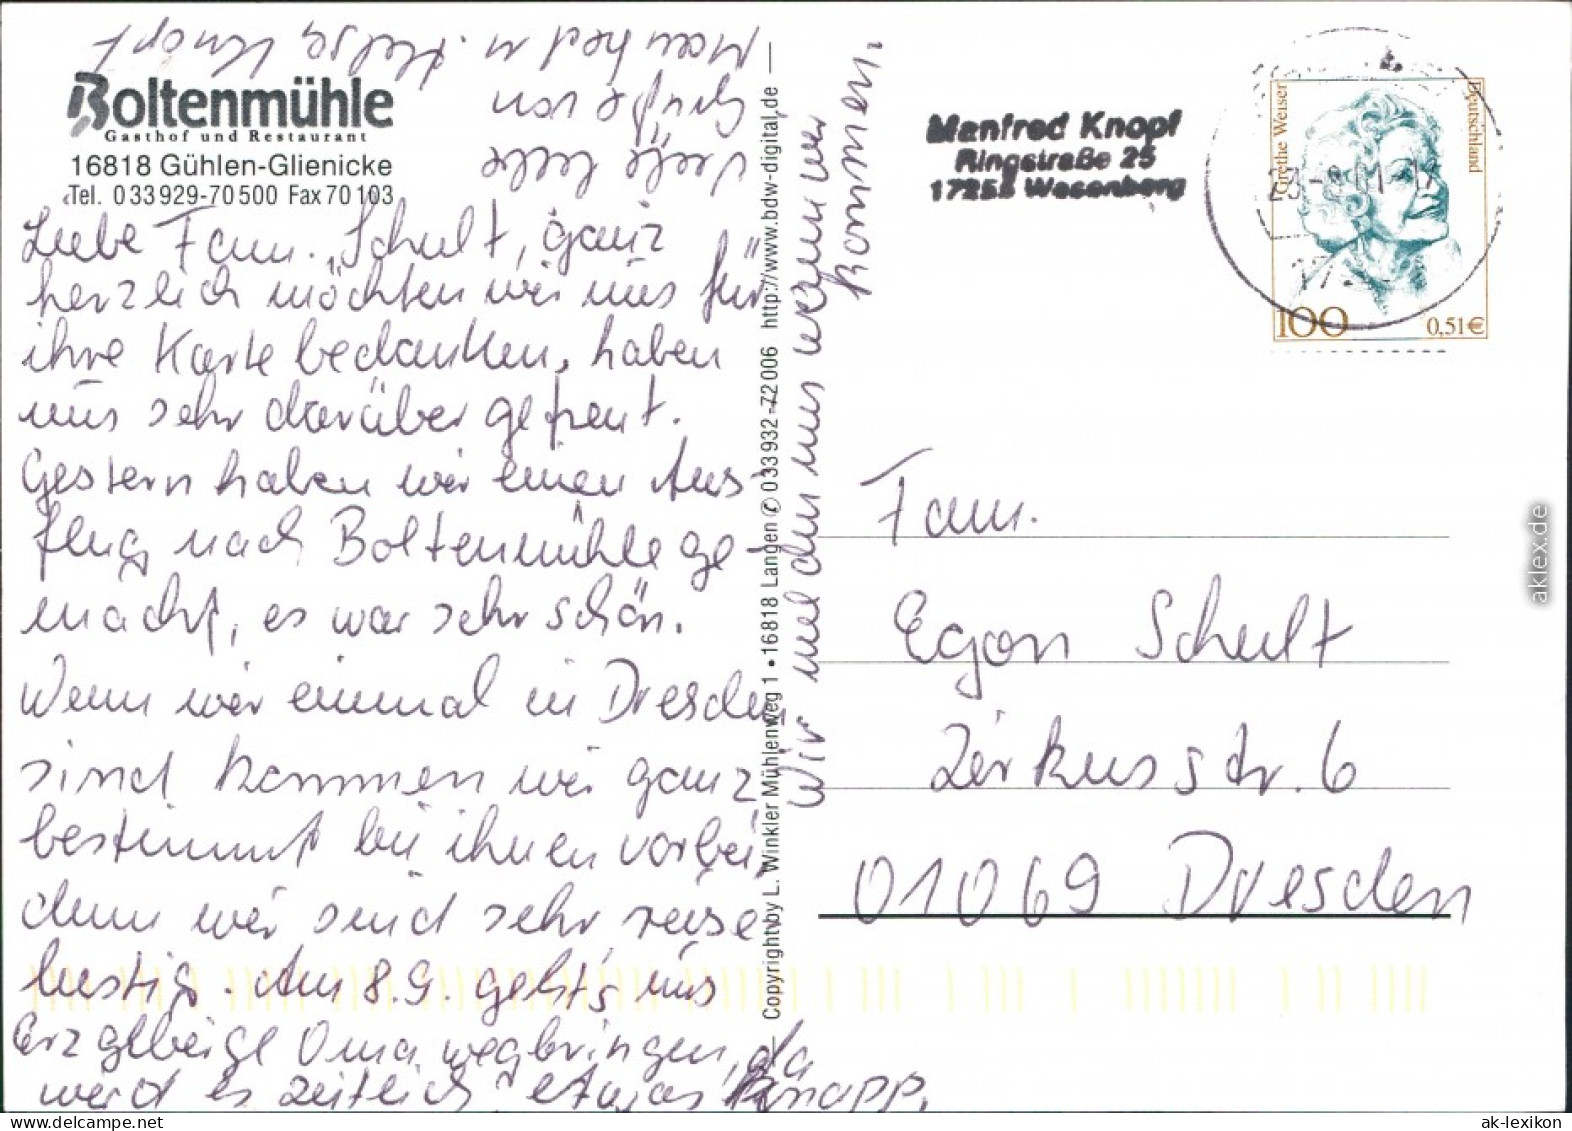 Boltenmühle
Gasthof und Restaurant
16818 Gühlen-Glienicke
Tel. 033929-70500 Fax 70103
Liebe Fam. Schult, ganz
herzlich möchten wir uns für
ihre Karte bedanken, haben
uns sehr darüber gefreut.
Gestern haben wir einen Aus-
flug nach Boltenmühle ge-
macht, es war sehr schön.
Wenn wir einmal in Dresden
sind kommen wir ganz
bestimmt bei ihnen vorbei,
denn wir sind sehr reise
lustig. Am 8.9. geht's ins
Erzgebirge Oma wegbringen, da
wird es zeitlich etwas knapp.
Wir melden uns wenn wir
kommen.
Viele liebe
Grüße von
Manfred u. Helga Knopf
Copyright by L. Winkler Mühlenweg 1 • 16818 Langen ✆ 033932-72006 http://www.bdw-digital.de
Manfred Knopf
Ringstraße 25
17255 Wesenberg
Grethe Weiser
Deutschland
100
0,51€
Fam.
Egon Schult
Zirkusstr. 6
01069 Dresden
aklex.de
ak-lexikon